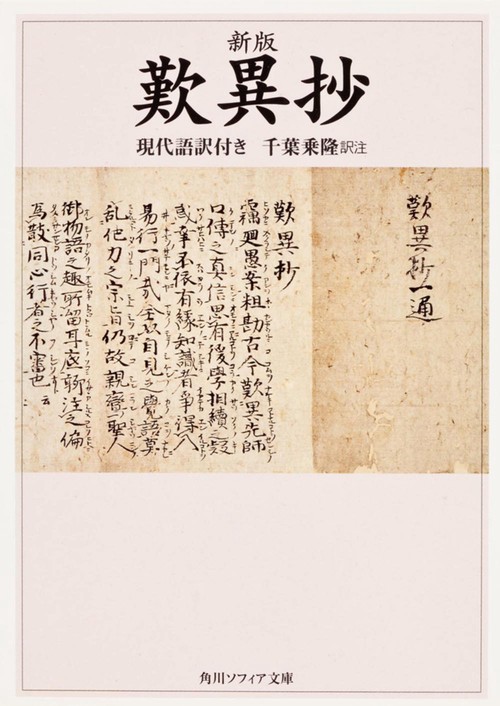 新版
歎異抄
現代語訳付き 千葉乗隆訳注
歎異抄一通
歎異抄
竊廻愚案粗勘古今歎異先師
口傳之真信思有後學相續之疑
惑幸不依有縁知識者爭得入
易行一門哉全以自見之覺語莫
乱他力之宗旨仍故親鸞聖人
御物語之趣所留耳底聊注之偏
為散同心行者之不審也 云
角川ソフィア文庫